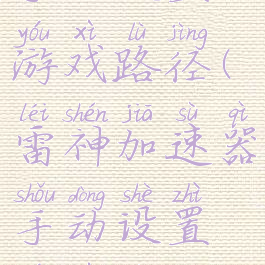 yóu xì lù jìng
游戏路径(
léi shén jiā sù qì
雷神加速器
shǒu dòng shè zhì
手动设置